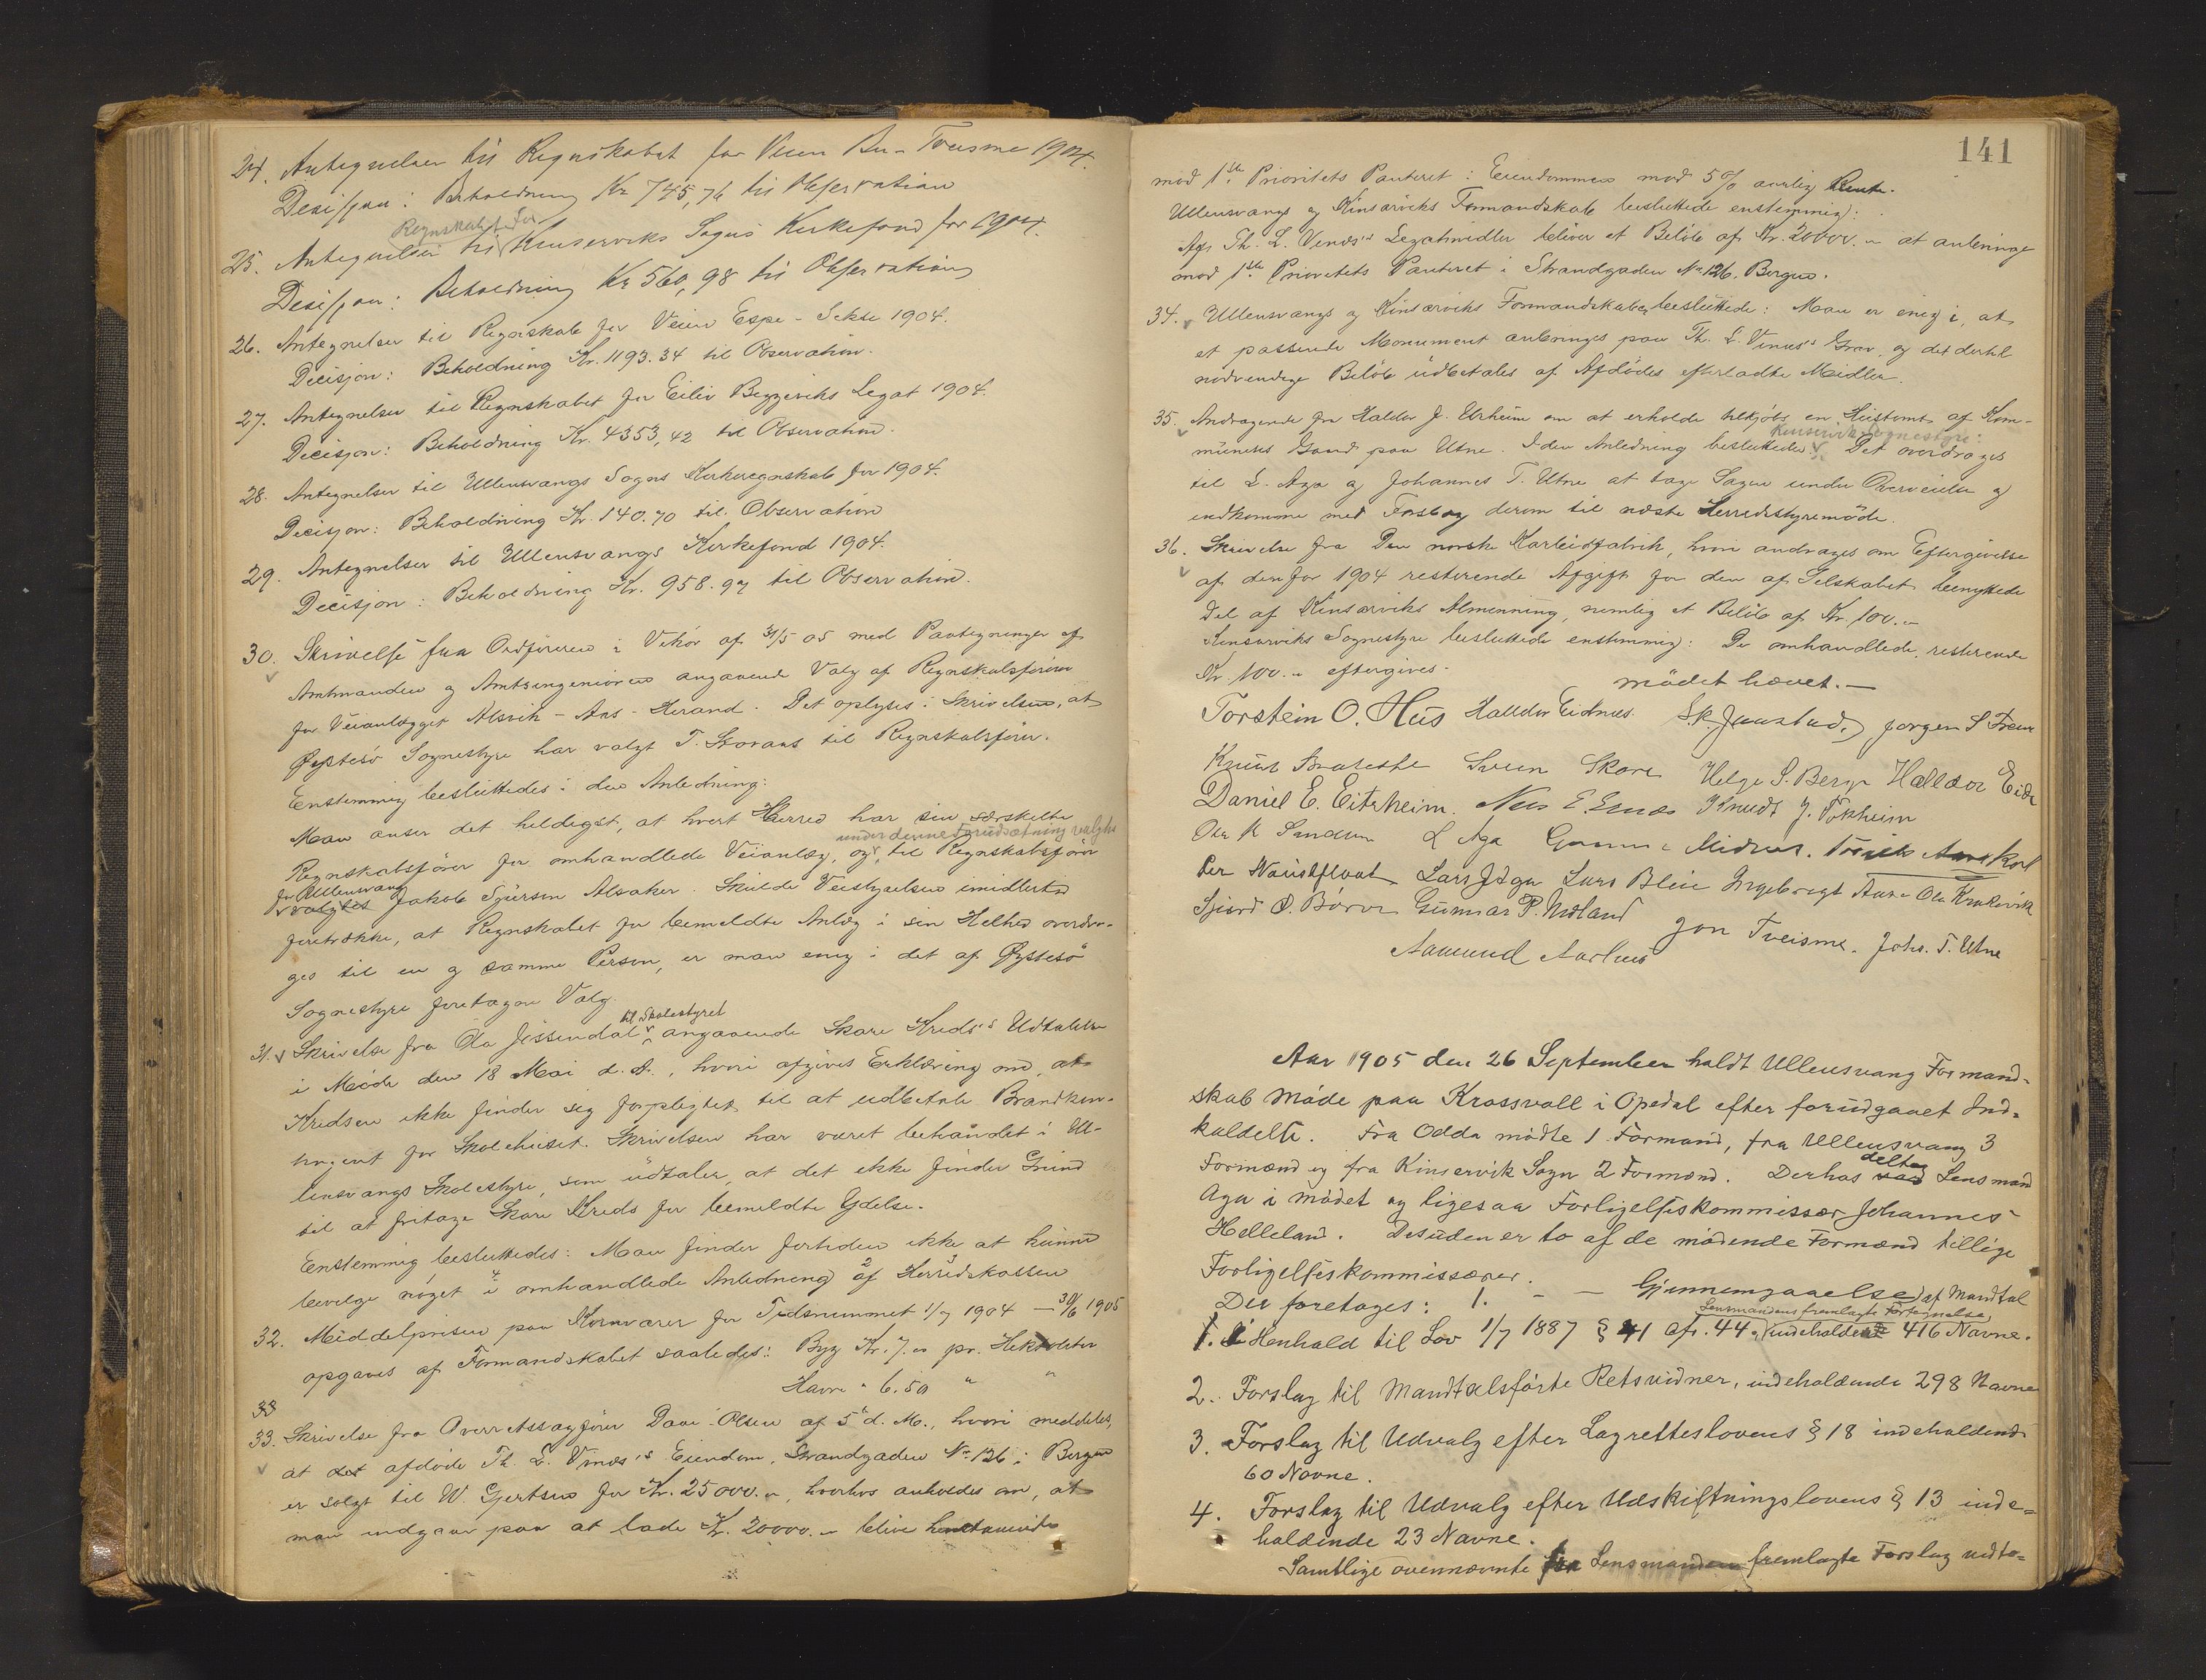 24. Antegnelser til Regnskabet for Veien Bu-Tveisme 1904.
Desisjon: Beholdning Kr 745,76 til Observation
Regnskabet for
25. Antegnelser til Kinserviks Sogns Kirkefond for 1904.
Desisjon: Beholdning Kr 560,98 til Observation
26. Antegnelser til Regnskab for Veien Espe - Sekse 1904.
Decisjon: Beholdning Kr. 1193.34 til Observation.
27. Antegnelser til Regnskabet for Eiliv Byggeviks Legat 1904.
Decisjon: Beholdning Kr. 4353,42 til Observation.
28. Antegnelser til Ullensvangs Sogns Kirkeregnskab for 1904.
Decisjon: Beholdning Kr. 140.70 til Observation
29. Antegnelser til Ullensvangs Kirkefond 1904.
Decisjon: Beholdning Kr. 958.97 til Observation.
30. Skrivelse fra Ordføreren i Vikør af 31/5 05 med Paategninger af
Amtmanden og Amtsingeniøren angaaende Valg af Regnskabsfører
for Veianlægget Alsvik - Aas - Herand. Det oplyses i Skrivelsen, at
Øystesø Sognestyre har valgt T. Skovaas til Regnskabsfører.
Enstemmig besluttedes i den Anledning:
Man anser det heldigst, at hvert Herred har sin særskilte
under denne Forudsætning valgtes
Regnskabsfører for omhandlede Veianlæg, og til Regnskabsfører
for Ullensvang
valgtes Jakob Sjursen Alsaker. Skulde Veistyrelsen imidlertid
foretrække, at Regnskabet for bemeldte Anlæg i sin Helhed overdra-
ges til en og samme Person, er man enig i det af Øystesø
Sognestyre foretagne Valg.
til Skolestyret
31. Skrivelse fra Ola Jøssendal angaaende Skare Kreds's Udtalelse
i Møde den 18 Mai d. A., hvori afgives Erklæring om, at
Kredsen ikke finder sig forpligtet til at udbetale Brandkon-
tingent for Skolehuset. Skrivelsen har været behandlet i Ul-
lensvangs Skolestyre, som udtaler, at det ikke finder Grund
til at fritage Skare Kreds for bemeldte Ydelse.
Enstemmig besluttedes: Man finder fortiden ikke at kunne
bevilge noget i omhandlede Anledning af Herredskassen
32. Middelprisen paa Kornvarer for Tidsrummet 1/7 1904 — 30/6 1905
opgaves af Formandskabet saaledes: Byg Kr. 7.00 pr. Hektoliter
Havre " 6.50 " "
33
33. Skrivelse fra Overretssagfører Daae-Olsen af 5te d. M., hvori meddeles,
at det afdøde Th. L. Vinæs's Eiendom, Strandgaden No 126 i Bergen
er solgt til W. Gjertsen for Kr. 25000.00, hvorhos anholdes om, at
man indgaar paa at lade Kr. 20000.00 blive henstaaende
141
mod 1ste Prioritets Panteret i Eiendommen mod 5% aarlig Rente.
Ullensvangs og Kinsarviks Formandskab besluttede enstemmig:
Af Th. L. Vinæs's Legatmidler bliver et Beløb af Kr. 20000.00 at anbringe
mod 1ste Prioritets Panteret i Strandgaden No 126, Bergen.
34. Ullensvangs og Kinsarviks Formandskaber besluttede: Man er enig i, at
et passende Monument anbringes paa Th. L. Vinæs's Grav, og det dertil
nødvendige Beløb udbetales af Afdødes efterladte Midler.
35. Andragende fra Haldor J. Utheim om at erholde tilkjøbs en Hustomt af Kom-
Kinservik Sognestyre:
munens Gaard paa Utne. I den Anledning besluttedes Det overdrages
til L. Aga og Johannes T. Utne at tage Sagen under Overveielse og
indkomme med Forslag derom til næste Herredsstyremøde.
36. Skrivelse fra Den norske Karbidfabrik, hvori andrages om Eftergivelse
af den for 1904 resterende Afgift for den af Selskabet benyttede
Del af Kinsarviks Almenning, nemlig et Beløb af Kr. 100.00
Kinsarviks Sognestyre besluttede enstemmig: De omhandlede, resterende
Kr. 100.00 eftergives.
mödet hævet.—
Torstein O. Hus Halldor Eidnes S. K. Jaastad, Jorgen S Freim
Knut Svein Skare Helge S. Berge Halldor Eide
Daniel E. Eitrheim. Knudt J. Tokheim
L Aga Gunnar Midnes.
Per Naustflaat Lars J Aga Lars Bleie Ingebrigt Aase Ola Krakevik
Sjurd O. Børve Gunnar P. Midland Jon Tveisme. Johs. T. Utne
Aamund Aarhus
Aar 1905 den 26 September holdt Ullensvang Formand-
skab Möde paa Krossvoll i Opedal efter forudgaaet Ind-
kaldelse. Fra Odda mödte 1 Formand, fra Ullensvang 3
deltog
Formænd og fra Kinservik Sogn 2 Formænd. Derhos var Lensmand
Aga i mödet og ligesaa Forligelseskommissær Johannes
Helleland. Desuden er to af de mödende Formænd tillige
Forligelseskommissærer.
Der foretages: 1. - - Gjennemgaaelse af Mandtal
Lensmandens fremlagte Fortegnelse
1. I Henhold til Lov 1/7 1887 § 41 cfr. 44. indeholdende 416 Navne.
2. Forslag til Mandtalsførte Retsvidner, indeholdende 298 Navne
3. Forslag til Udvalg efter Lagretteslovens § 18 indeholdende
60 Navne.
4. Forslag til Udvalg efter Udskiftningslovens § 13 inde-
holdende 23 Navne.
Samtlige ovennævnte fra Lensmanden fremlagte Forslag vedto-